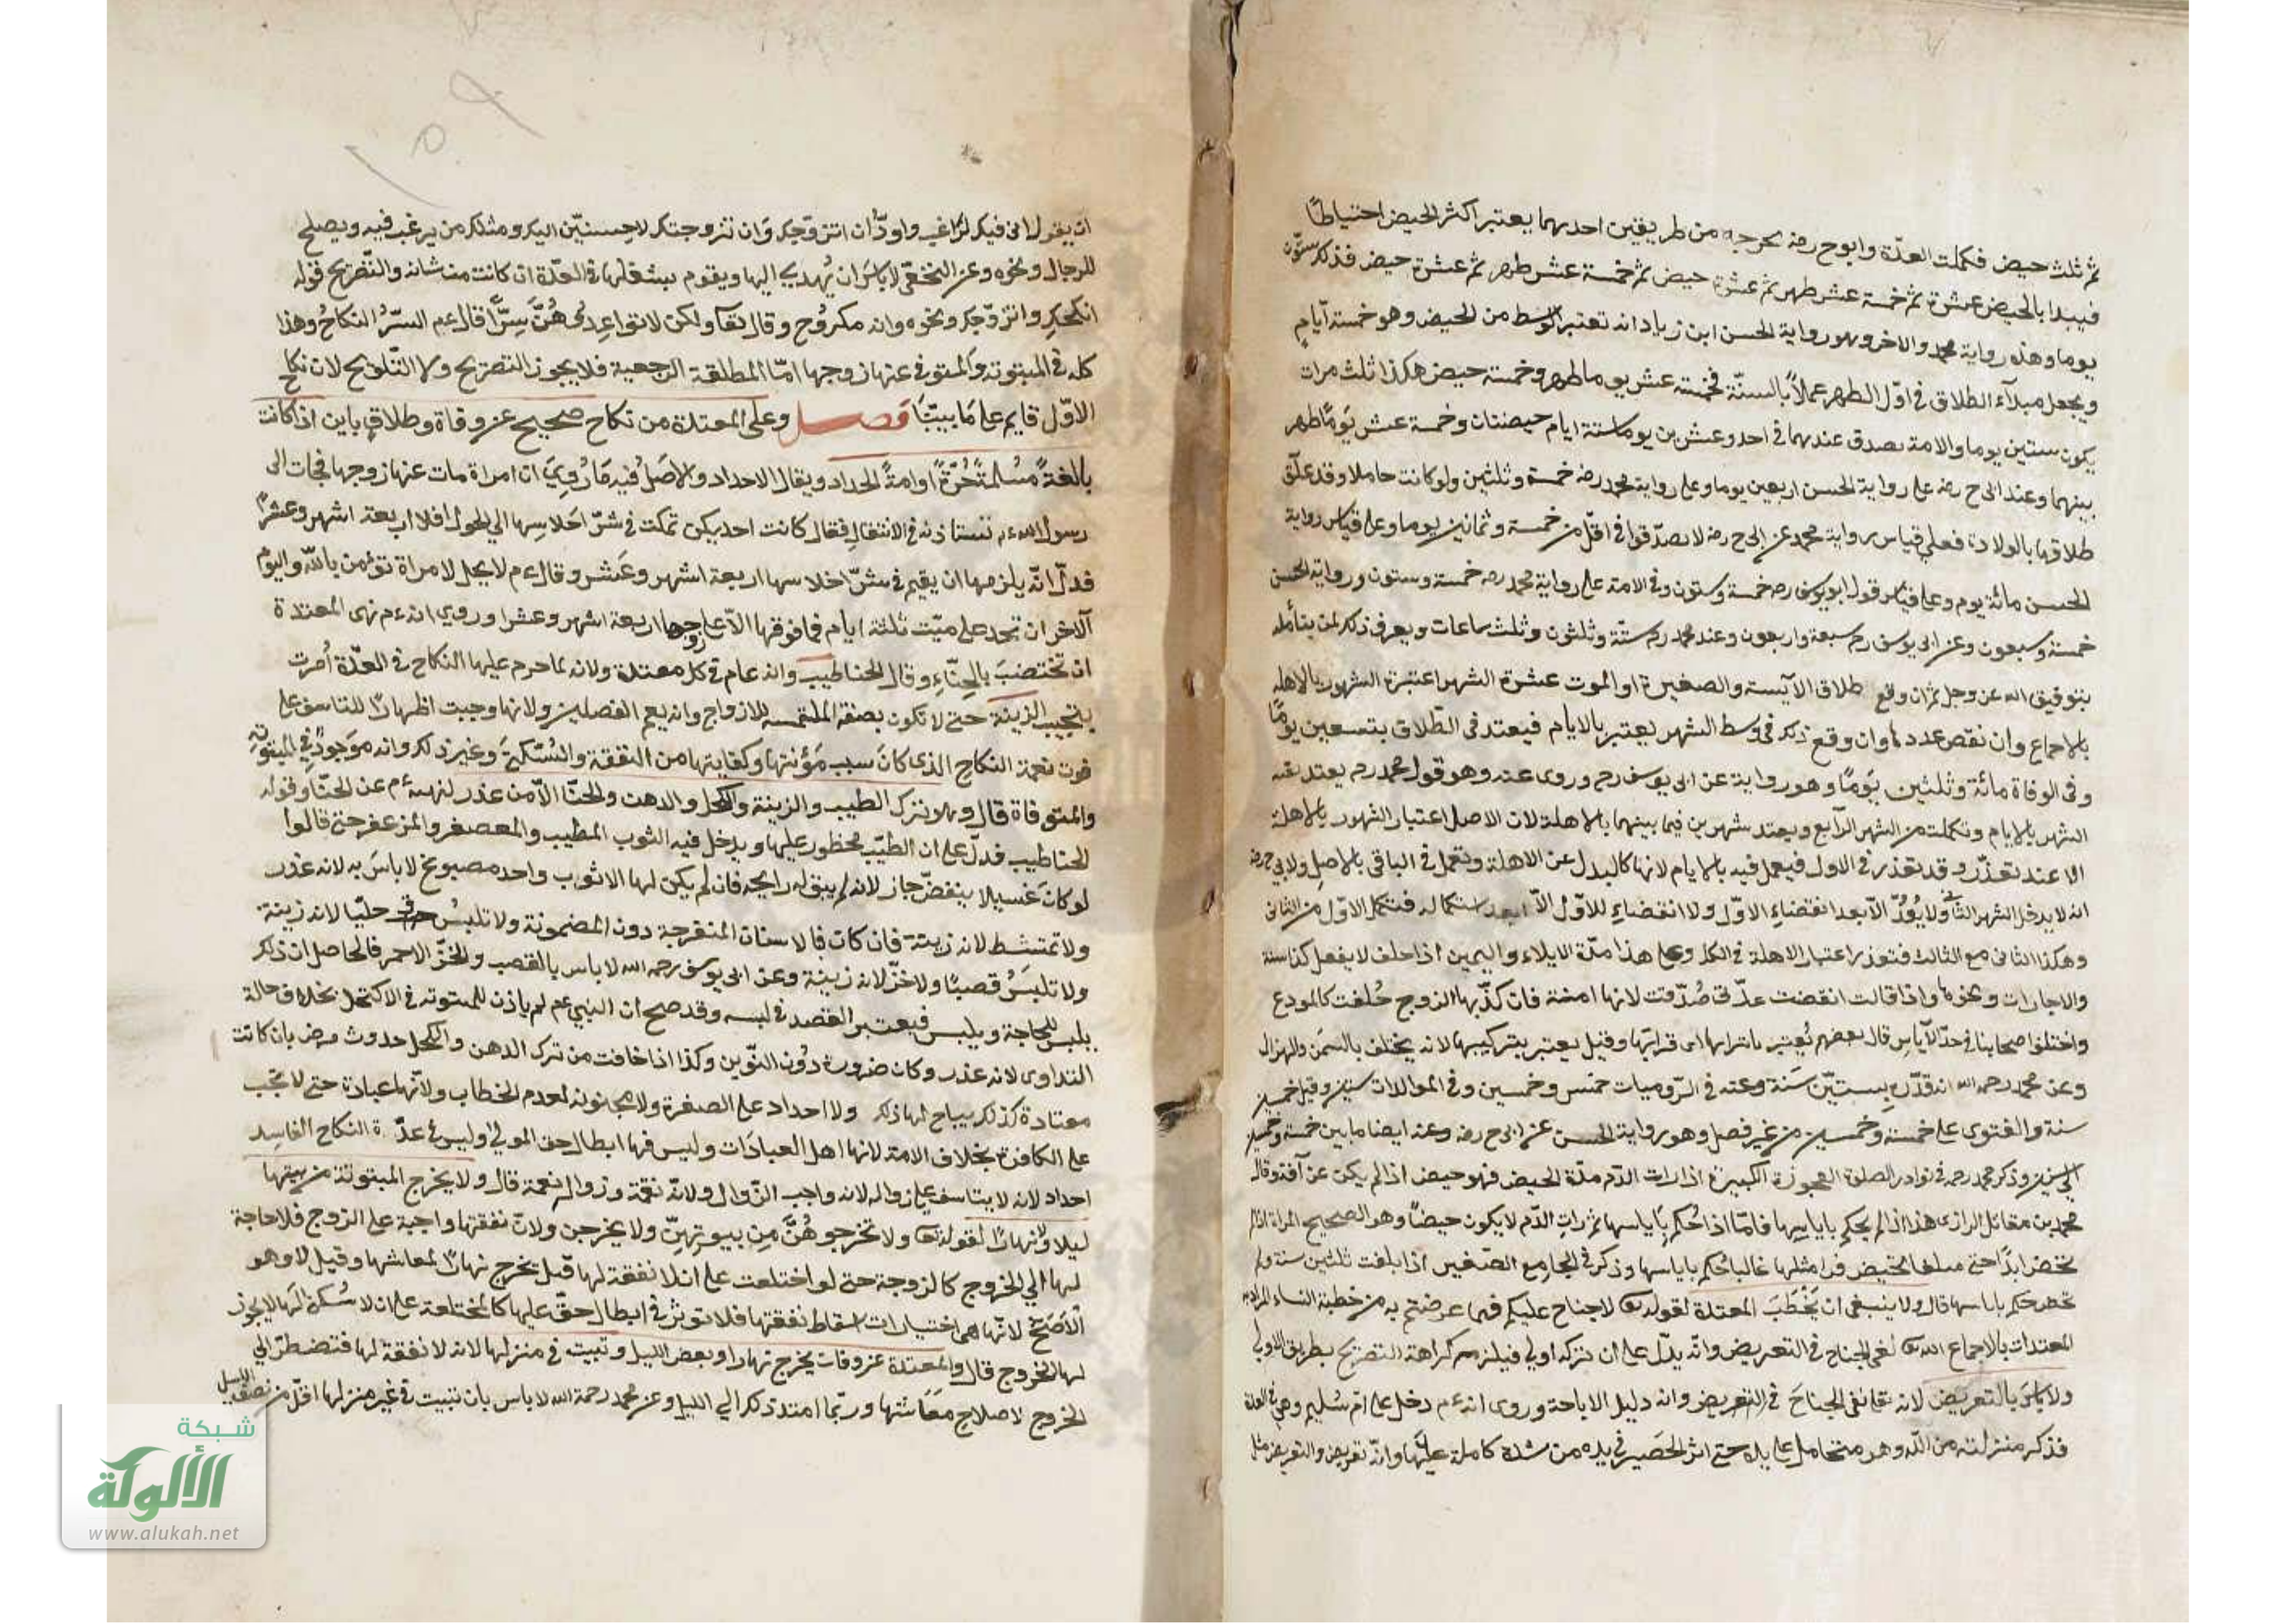 ثم ثلث حيض فكملت العدّة وابوح رضه بحرجه من طريقين احديهما يعتبر اكثر الحيض احتياطًا
فيبدا بالحيض عشرة ثم خمسة عشر طهر ثم عشرة حيض ثم خمسة عشر طهر ثم عشرة حيض فذلك ستّون
يوما وهذه رواية محمد والاخر وهو رواية الحسن ابن زياد انه تعتبر الوسط من الحيض وهو خمسة ايّام
ويجعل مبدآء الطلاق في اوّل الطهر عملاً بالسنّة فخمسة عشر يوما طهر وخمسة حيض هكذا ثلث مرات
يكون ستين يوما والامة يصدق عندهما في احد وعشرين يوما ستة ايام حيضتان وخمسة عشر يَومًا طهر
بينهما وعند ابى ح رضه على رواية الحسن اربعين يوما وعلى رواية محمد رضه خمسة وثلثين ولو كانت حاملا وقد علّق
طلاقها بالولادة فعلى قياس رواية محمد عن ابى ح رضه لا يصدّقوا في اقلّ من خمسة وثمانين يوما وعلى قياس رواية
الحسن مائة يوم وعلى قياس قول ابو يوسف رحه خمسة وستون وفي الامة على رواية محمد رحه خمسة وستون ورواية الحسن
خمسة وسبعون وعن ابى يوسف رحه سبعة واربعون وعند محمد رحه ستّة وثلثون وثلث ساعات ويعرف ذلك لمن يتأمله
بتوفيق الله عز وجل ثم ان وقع طلاق الآيسة والصغيرة او الموت عشرة الشهر اعتبرة الشهور بالاهلة
بالاجماع وان نقص عددها وان وقع ذلك في وسط الشهر يعتبر بالايام فيعتد في الطّلاق بتسعين يومًا
وفى الوفاة مائة وثلثين يَومًا وهو رواية عن ابى يوسف رح وروى عنه وهو قول محمد رحه يعتد بقية
الشهر بالايام وتكملت من الشهر الرّابع ويعتد شهرين فيما بينهما بالاهلة لان الاصل اعتبار الشهور بالاهلة
الا عند تعذّر وقد تعذر في الاول فيعمل فيه بالايام لانها كالبدل عن الاهلة ويعمل في الباقى بالاصل ولابي ح رضه
انه لا يدخل الشهر الثاني ولا يُعُدّ الاّ بعد انقضاءِ الاوّل ولا انقضاءِ للاوّل الاّ بعد استكماله فتكمل الاوّل من الثانى
وهكذا الثانى مع الثالث فتعذر اعتبار الاهلة في الكل وعلى هذا مدّة الايلاء واليمين اذا حلف لا يفعل كذا سنة
والاجارات ونحوها واذا قالت انقضت عدّتى صُدّقت لانها امينة فان كذّبها الزوج حُلفت كالمودع
واختلفوا صحابنا في حدّ الآياسِ قال بعضهم يُعتبر باترابها اى قراباتها وقيل يعتبر بتركيبها لانه يختلف بالسّمَن والهزال
وعن محمد رحمه الله انه قدّره بِسِتيّن سَنة وعنه في الرّوميات خمس وخمسين وفى الموالات ستين وقيل خمسين
سنة والفتوى على خمسة وخمسين من غير فصل وهو رواية الحسن عن ابى ح رضه وعنه ايضا ما بين خمسة وخمسين
الى ستين وذكر محمد رحه في نوادر الصلوة العجوزة الكبيرة اذا رات الدّم مدّة الحيض فهو حيض اذا لم يكن عن آفة وقال
محمد بن مقاتل الرازى هذا اذا لم يحكم باياسِها فامّا اذا حُكم باَياسها ثم راتِ الدّم لا يكون حيضًا وهو الصحيح المراة اذا لم
تحض ابدًا حتى مبلغا لا تحيض فيه امثلها غالبا حُكم باياسها وذكر في الجامع الصّغير اذا بلغت ثلثين سنة ولم
تحض حكم باياسها قال ولا ينبغى ان يَخطُبَ المعتدة لقوله تعا لا جناح عليكم فيما عرضتم به من خطبة النساء المراد به
المعتدات بالاجماع الله تعا نفى الجناح في التعريض وانّه يدّل على ان تركه اولي فيلزم كراهة التصريح بطريق الاولي
ولا باسَ بالتعريض لانه تعا نفى الجناحَ في التعريض وانه دليل الاباحة وروى انه ءم دخل على امّ سُليم وهى في العدة
فذكر منزلته من اللّه وهو متحامل على يده حتى اثر الحَصَير في يده من شدة كاملة عليها وانّه تعريض والتعريض مثل
ان يقول انى فيك لرَاغب واودُّ ان اتزوّجكِ وَان تزوجتك لاحسننّ اليك ومثلك من يرغب فيه ويصلح
للرجال ونحوه وعن النخعّى لا باسَ ان يُهدى اليها ويقوم بشغلها في العدّة ان كانت من شانه والتّصريح قوله
انكحكِ واتزوّجك ونحوه وانه مكروُه وقال تعآ ولكن لا تواعِدوُهُنَّ سِرًّا قال عم السّرُّ النكاحُ وهذا
كله في المبتوته والمتوفى عنها زوجها امّا المطلقة الرجعية فلا يجوز التصريح ولا التّلويح لان نكاح
الاوّل قايم على مَا بيّنّا فصل وعلى المعتدة من نكاح صحيح عن وفاة وطلاق باين اذا كانت
بالغةً مُسلمةً حُرّةً او امةً الحداد ويقال الاحداد والاصلُ فيه مَا رُوِيَ ان امراة مات عنها زوجها فجات الى
رسول الله ءم تستاذنه في الانتقال فقال كانت احديكن تمكث في شرّ احَلاسِها الي الحول افلا اربعة اشهر وعشرًا
فدلّ انّه يلزمها ان يقيم في شرّ احلاسها اربعة اشهر وعَشر وقال ءم لا يحل لامراة تؤمن باللّه واليوم
آلاخر ان تحد على ميّت ثلثة ايام فما فوقها الاّ على زوجها اربعة اشهر وعشرا وروى انه ءم نهى المعتدة
ان تختضبَ بالحِنّاءِ وقال الحنا طيب وانه عام في كل معتدة ولانه لما حرم عليها النكاح في العدّة اُمرت
بتجنب الزينة حتى لا تكون بصفة الملتمسه للازواج وانه يعم الفصلين ولانها وجبت اظهارًا للتاسف على
فوت نعمة النكاحِ الذى كانَ سبب مَؤنتها وكفايتها من النفقة والسُّكنيَ وغير ذلك وانه موجودٌ في المبتوته
والمتوفاة قال وهو تترك الطيب والزينة والكحل والدهن والحنّا الاّ من عذر لنهيه ءم عن الحنّا وقوله
الحنا طيب فدلّ على ان الطيّب محظور عليها ويدخل فيه الثوب المطيب والمعصفر والمزعفر حتى قالوا
لو كانَ غسيلا ينفضّ جاز لانه لم يبق له رايحه فان لم يكن لها الا ثوب واحد مصبوغ لا باسَ به لانه عذر
ولا تمتشط لانه زينة فان كان فبالاسنان المنفرجة دون المضمونة ولا تلبسُ حليّا لانه زينة
ولا تلبَسُ قصبًا ولا خزّ لانه زينة وعن ابى يوسف رحمه الله لا باس بالقصب والخزّ الاحمر فالحاصل ان ذلك
يلبس للحاجة ويلبس فيعتبر القصد في لبسه وقد صح ان النبي عم لم ياذن للمبتوته في الاكتحال بخلاف حالة
التداوى لانه عذر وكان ضرورة دوُن التزّين وكذا اذا خافت من ترك الدهن والكحل حدوث مرض بان كانت
معتادة كذلك يباح لها ذلك ولا احداد على الصغرة ولا مجنونه لعدم الخطاب ولانّها عبادة حتى لا تجب
على الكافرة بخلاف الامة لانها اهل العبادَات وليس فيها ابطال حق المولي وليس في عدّة النكاح الفاسِد
احداد لانه لا يتاسف على زواله لانه واجب الزّوال ولانّه نقمة وزوال نعمة قال ولا يخرج المبتوتة من بيتها
ليلا ولا نهارًا لقوله تعا ولا تخرجوهُنَّ مِن بيوتهِنّ ولا يخرجن ولانّ نفقتها واجبة على الزوج فلا حاجة
لها الي الخروج كالزوجة حتى لو اختلعت على ان لا نفقة لها قيل يخرج نهارًا لمعاشها وقيل لا وهو
الاَصَحّ لانّها هى اختيارات اسقاط نفقتها فلا توثر في ابطال حقّ عليها كالمختلعة على ان لا سُكنى لهَا لا يجوز
لها الخروج قال والمعتدة عن وفات يخرج نهارا وبعض الليل وتبيت في منزلها لانه لا نفقة لها فتضطرّ الي
الخروج لاصلاح معَاشها وربّما امتد ذلك الي الليل وعن محمد رحمة الله لا باس بان تبيت في غير منزلها اقلّ من نصف الليل
شبكة
الألوكة
www.alukah.net